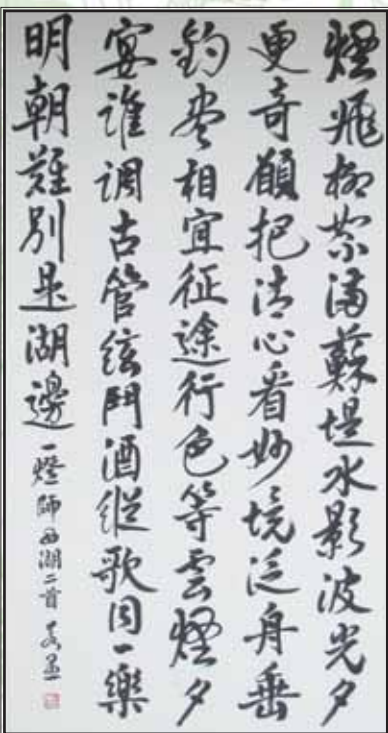 煙飛柳絮滿蘇堤水影波光夕
更奇願把清心看妙境泛舟垂
釣盡相宜征途行色等雲煙夕
宴誰調古管絃鬥酒縱歌同一樂
明朝難別是湖邊
一燈師西湖二首